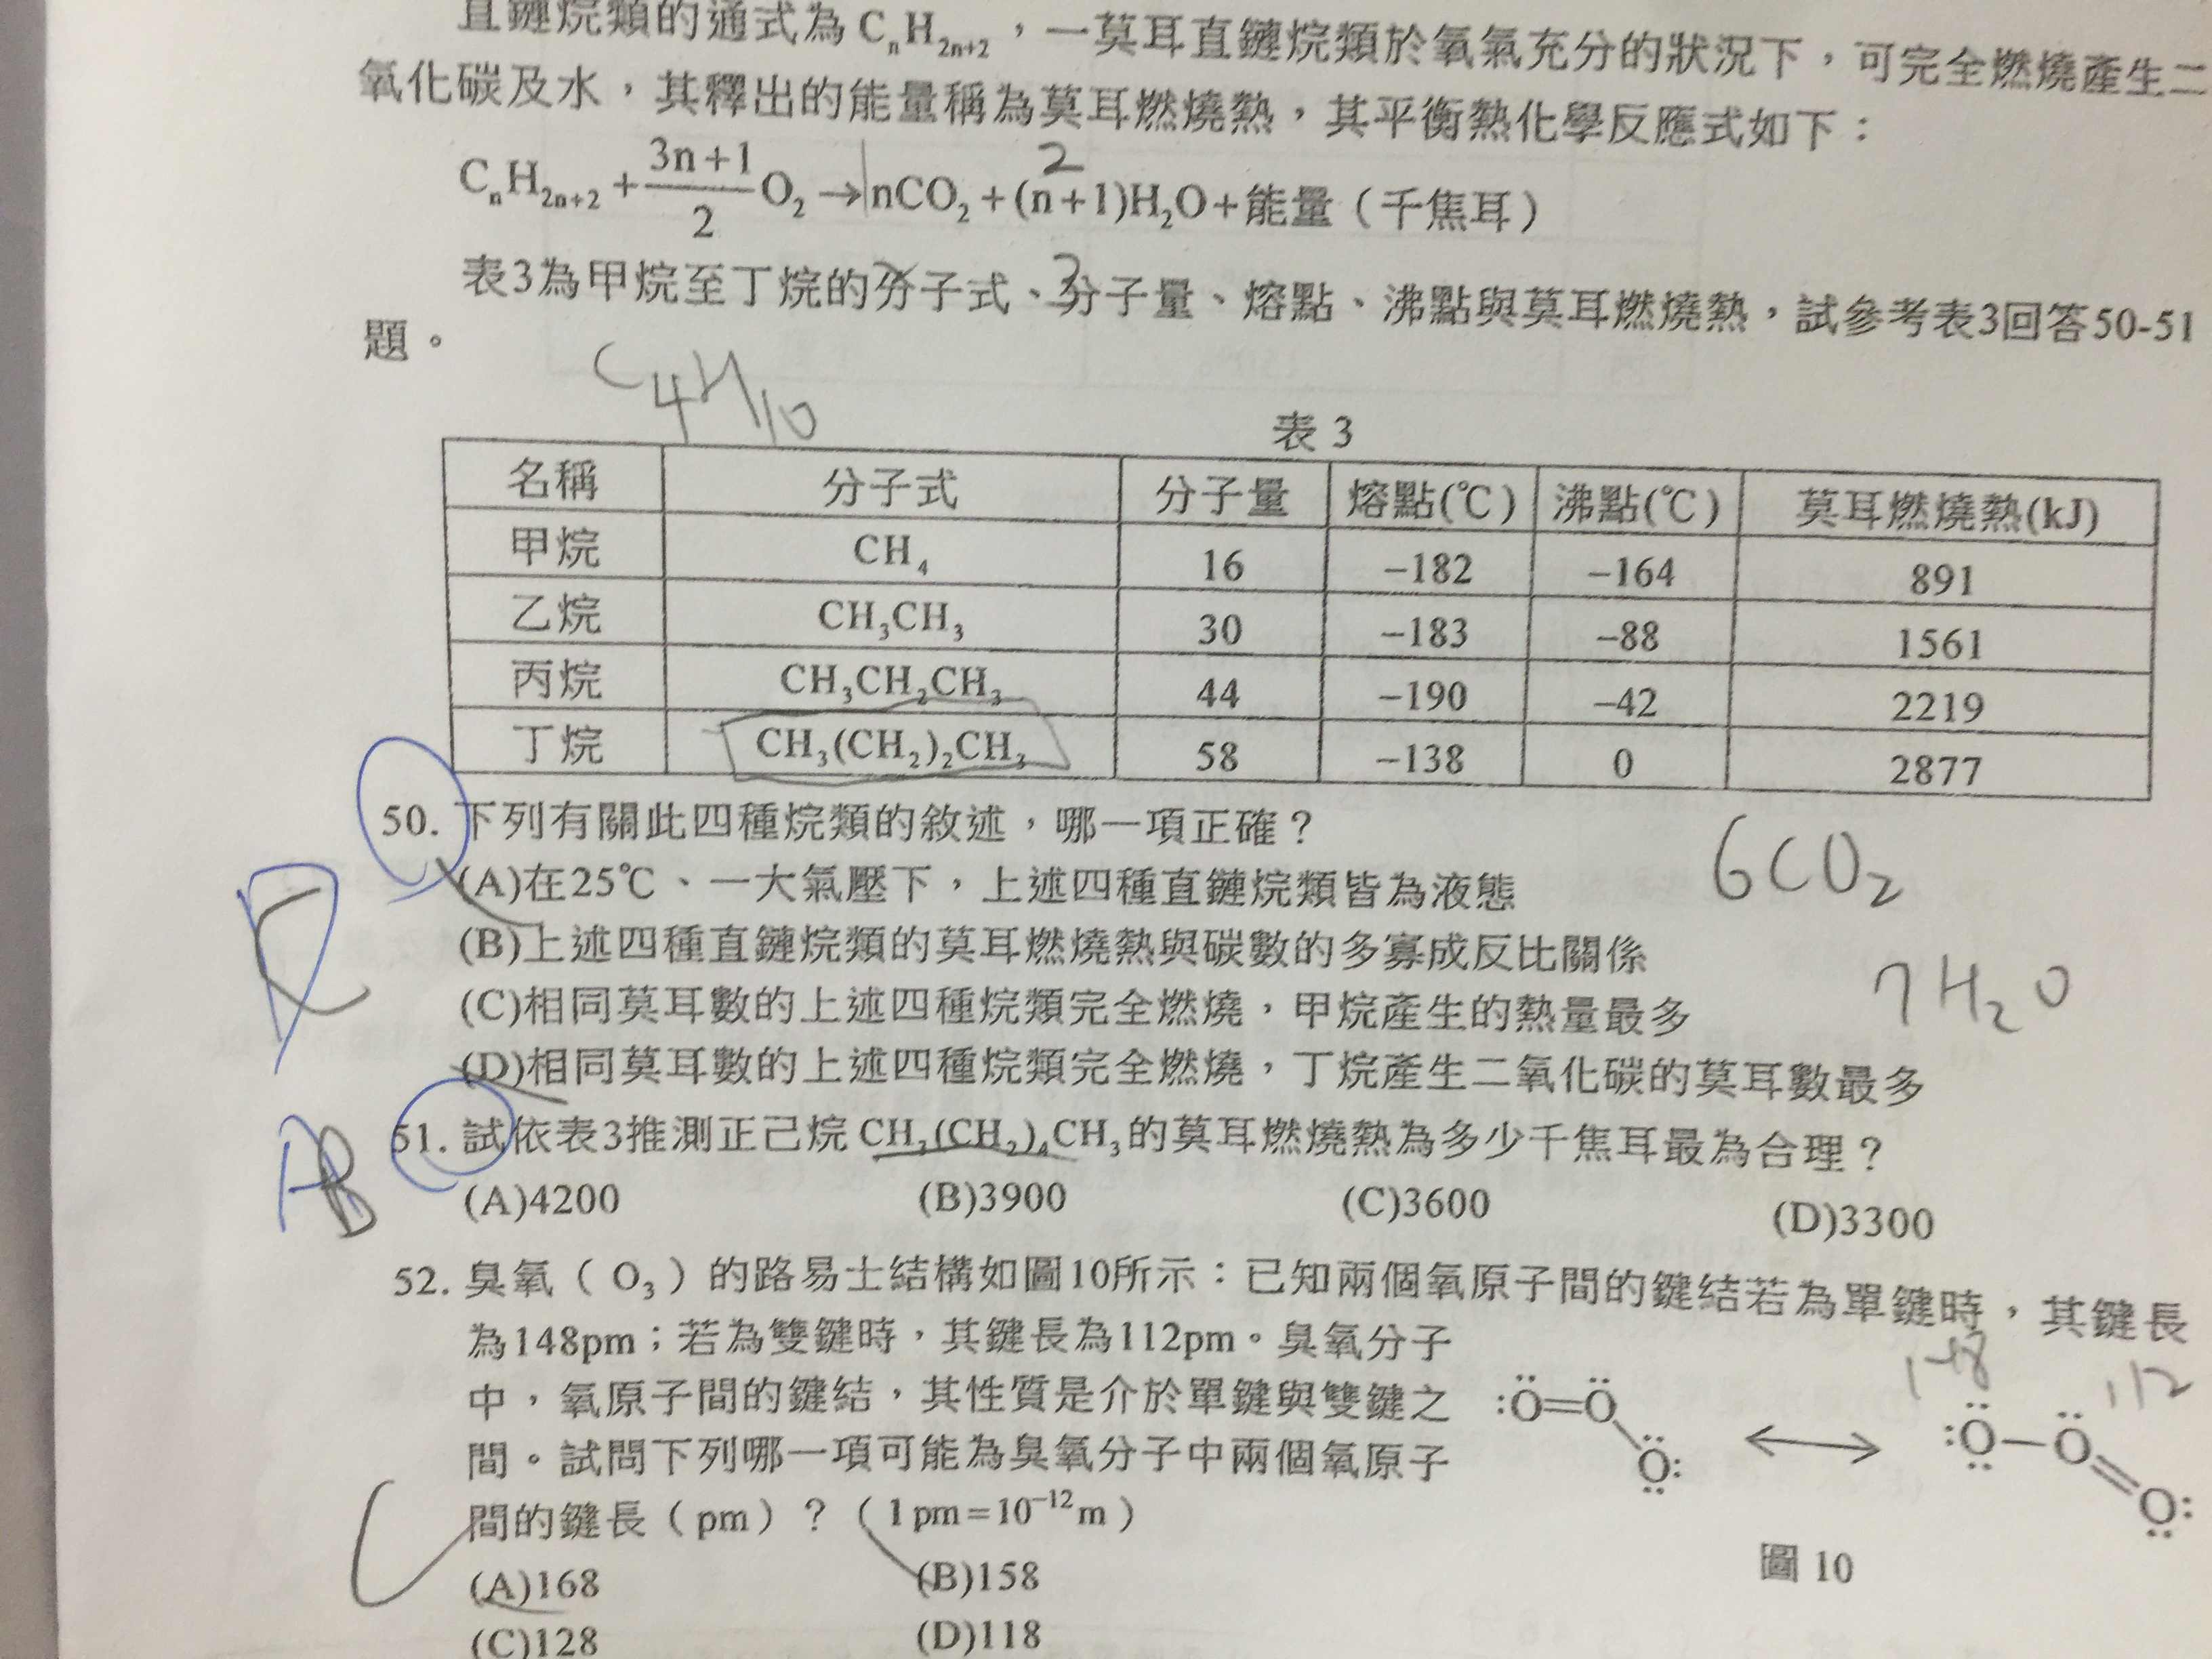 直鏈烷類的通式為CnH2n+2，一莫耳直鏈烷類於氧氣充分的狀況下，可完全燃燒產生二
氧化碳及水，其釋出的能量稱為莫耳燃燒熱，其平衡熱化學反應式如下：
2
CnH2n+2 + (3n+1)/2 O2 → nCO2 + (n+1)H2O + 能量（千焦耳）
3
表3為甲烷至丁烷的分子式、分子量、熔點、沸點與莫耳燃燒熱，試參考表3回答50-51
題。
C4H10
表 3
名稱 分子式 分子量 熔點(℃) 沸點(℃) 莫耳燃燒熱(kJ)
甲烷 CH4 16 −182 −164 891
乙烷 CH3CH3 30 −183 −88 1561
丙烷 CH3CH2CH3 44 −190 −42 2219
丁烷 CH3(CH2)2CH3 58 −138 0 2877
50. 下列有關此四種烷類的敘述，哪一項正確？
6CO2
(A)在25℃、一大氣壓下，上述四種直鏈烷類皆為液態
(B)上述四種直鏈烷類的莫耳燃燒熱與碳數的多寡成反比關係
7H2O
(C)相同莫耳數的上述四種烷類完全燃燒，甲烷產生的熱量最多
(D)相同莫耳數的上述四種烷類完全燃燒，丁烷產生二氧化碳的莫耳數最多
D C
51. 試依表3推測正己烷CH3(CH2)4CH3的莫耳燃燒熱為多少千焦耳最為合理？
A B
(A)4200 (B)3900 (C)3600 (D)3300
52. 臭氧（O3）的路易士結構如圖10所示：已知兩個氧原子間的鍵結若為單鍵時，其鍵長
為148pm；若為雙鍵時，其鍵長為112pm。臭氧分子
中，氧原子間的鍵結，其性質是介於單鍵與雙鍵之
間。試問下列哪一項可能為臭氧分子中兩個氧原子
間的鍵長（pm）？（1pm=10−12m）
C
(A)168 (B)158
(C)128 (D)118
148 112
:O=O O: ↔ :O−O O:
圖 10